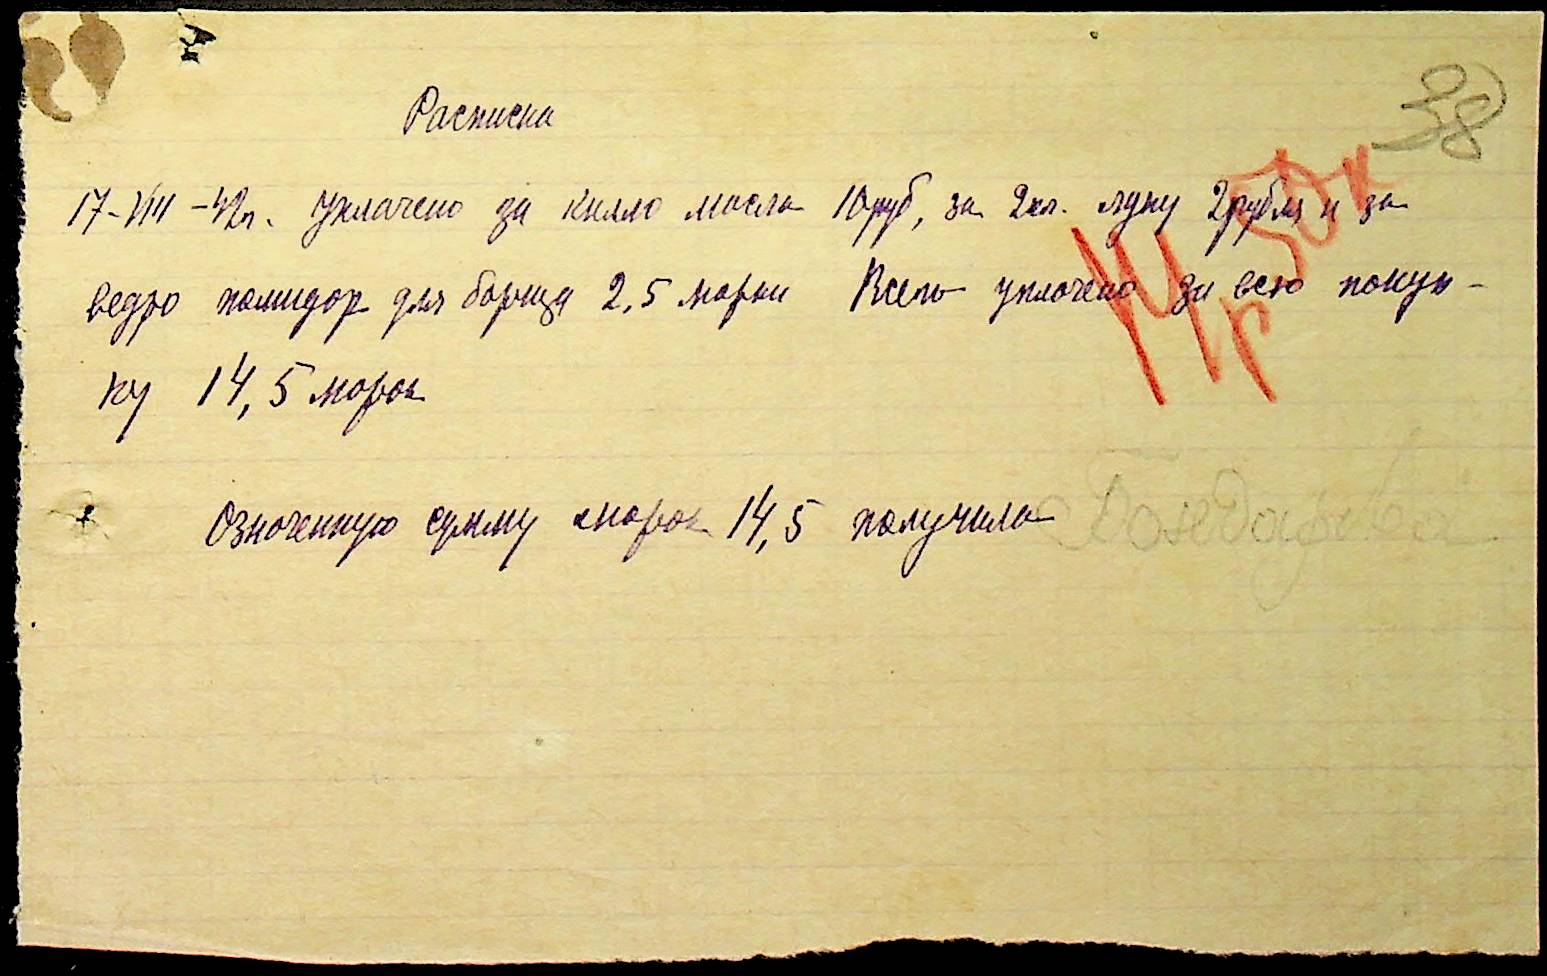 38
Расписка
17-VIII-42г. Уплачено за килло масла 10 руб, за 2 кл. луку 2 рубля и за
ведро памидор для борща 2,5 марки Всего уплочено за всю покуп-
ку 14,5 марок
Означенную сумму марок 14,5 получила